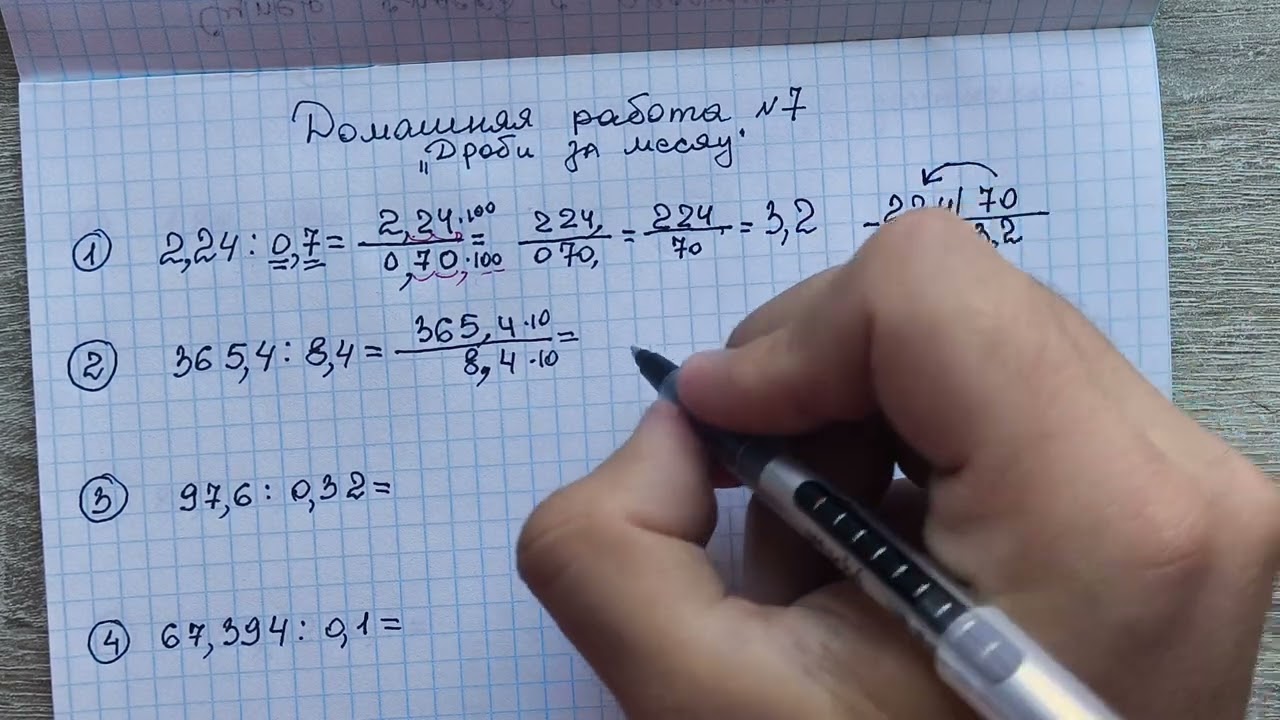 Домашняя работа №7
„Дроби за месяц"
① 2,24 : 0,7 = 2,24·100 / 0,70·100 = 224, / 070, = 224 / 70 = 3,2 70
3,2
② 365,4 : 8,4 = 365,4·10 / 8,4·10 =
③ 97,6 : 0,32 =
④ 67,394 : 0,1 =